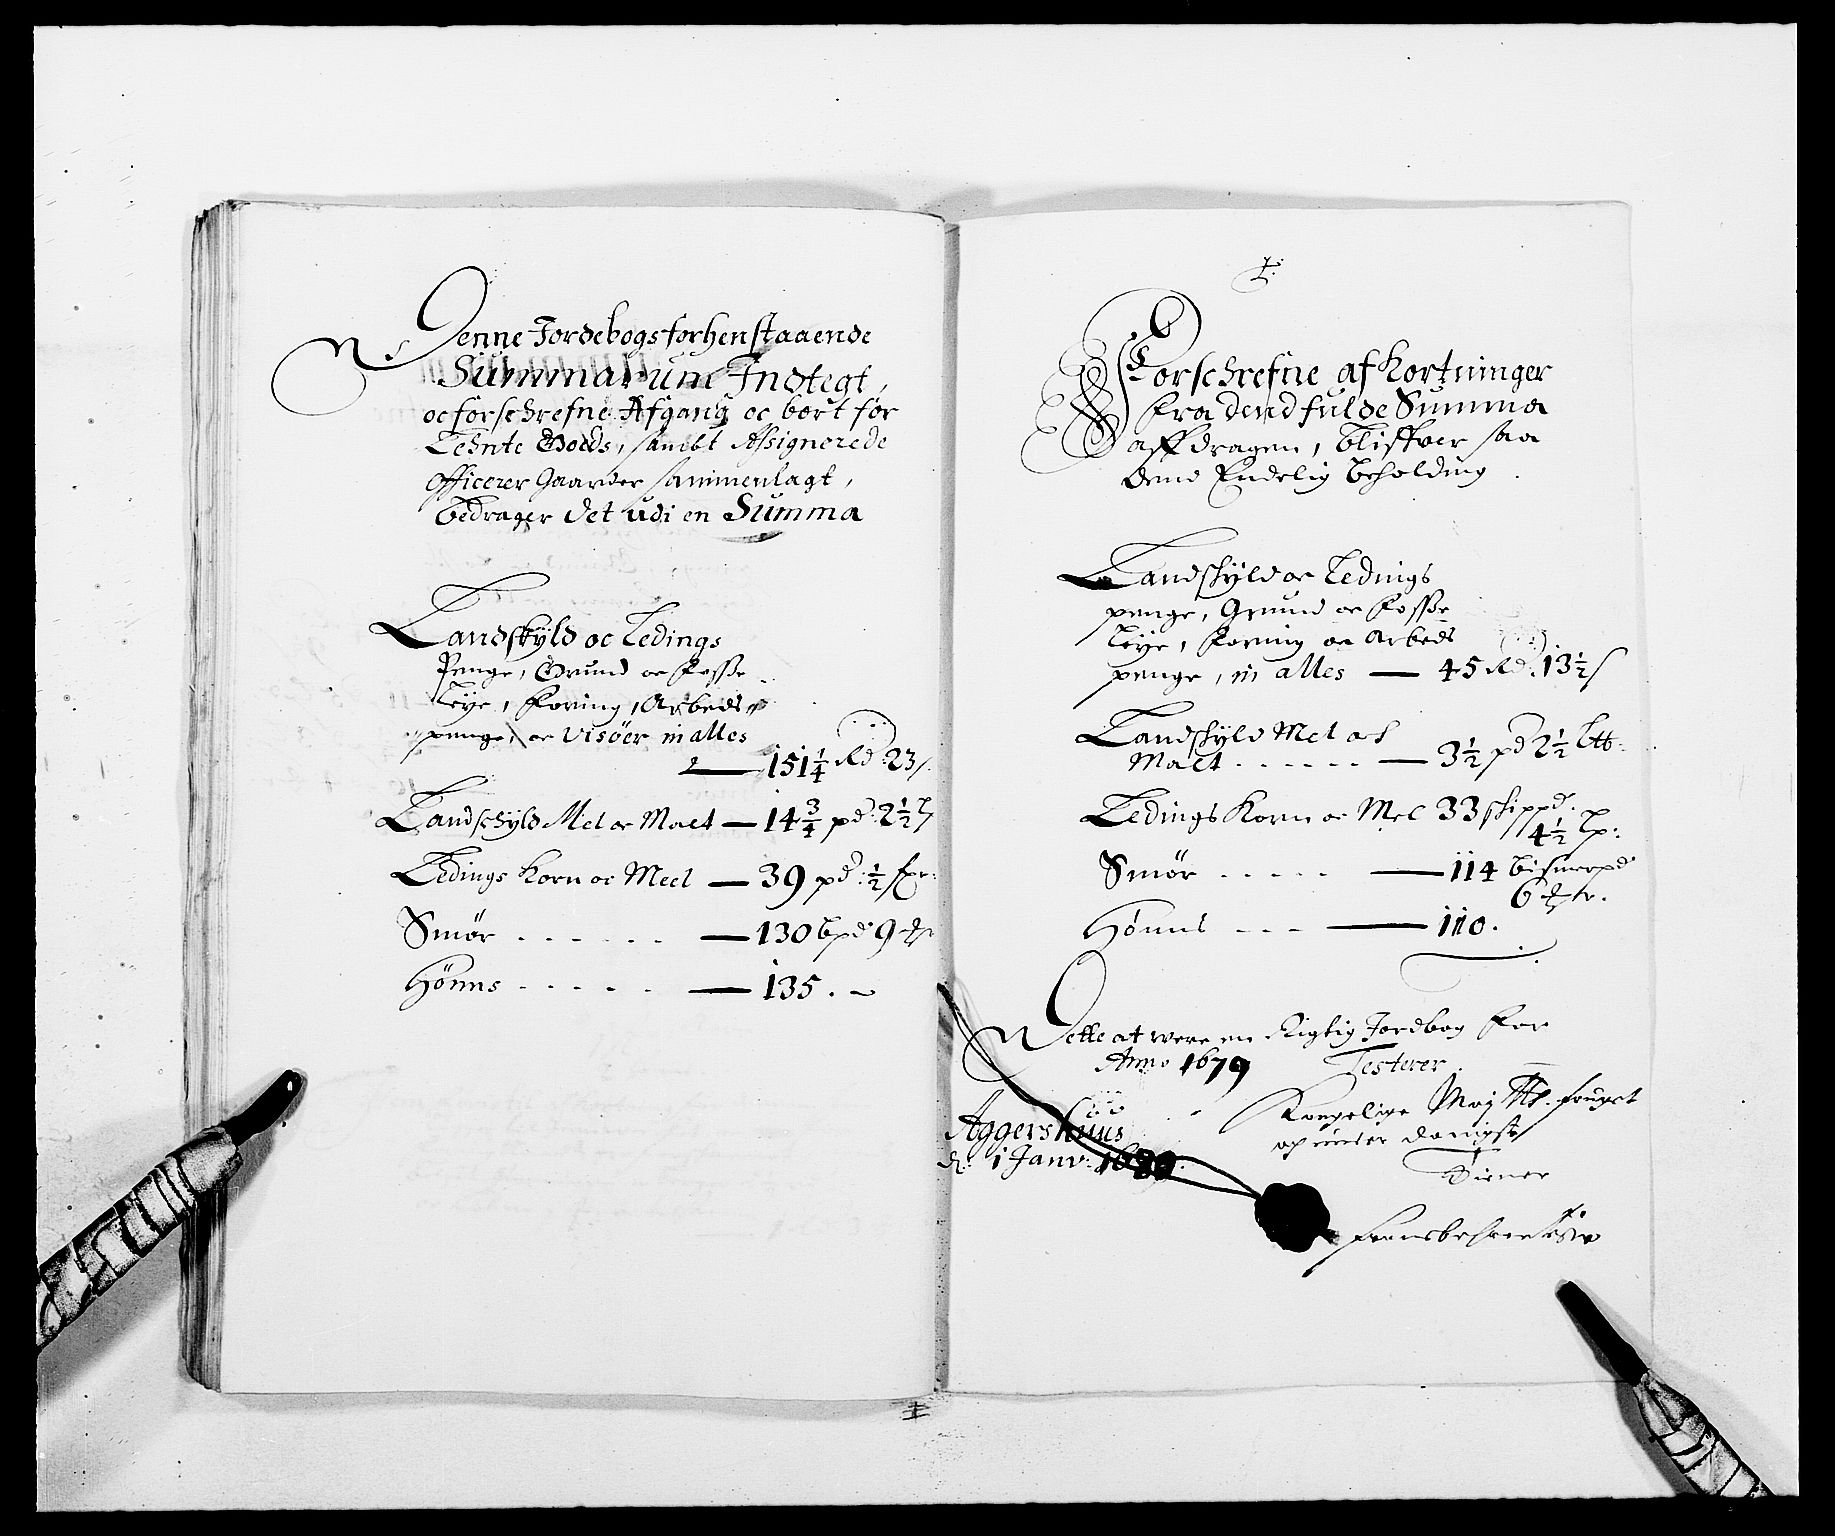 Denne Jordebogs forhenstaaende
Summarum Indtegt,
oc forschrefne Afgang oc bort for
Lehnte Goeds, sambt Assignerede
Officerer Gaarder sammenlagt,
bedrager det udi en Summa
Landskyld oc Ledings
Penge, Grund oc Fosse
Leye, Foring, Arbeds
penge, oc Visöer in alles
151 1/4 Rd 23 s
Landschyld Mel oc Malt — 14 3/4 pd: 2 1/2 l
Ledings Korn oc Meel — 39 pd: 1/2 fr:
Smør - - - - - - — 130 bpd 9
Hønns - - - - - — 135.
Forschrefne afkortninger
fra dend fulde Summa
affdragen, bliffver saa
dend Endelig beholding
Landschyld oc Ledings
penge, Grund oc Fosse
Leye, Foring oc Arbeds
penge, in alles — 45 Rd. 13 1/2 s
Landschyld Mel oc
Malt - - - - - - — 3 1/2 pd 2 1/2 Ltb:
Ledings Korn oc Mel 33 skippd.
4 1/2 Lp:
Smør - - - - - — 114 bismerpd
6
Hønns - - - — 110.
Dette at were en Rigtig Jordbog for
Anno 1679 Testerer.
Aggershuus
d: 1 Janv: 1680.
Kongelige Maj
og under danigste
Diener